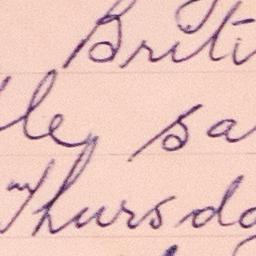 Briti
le, sa
Thursda